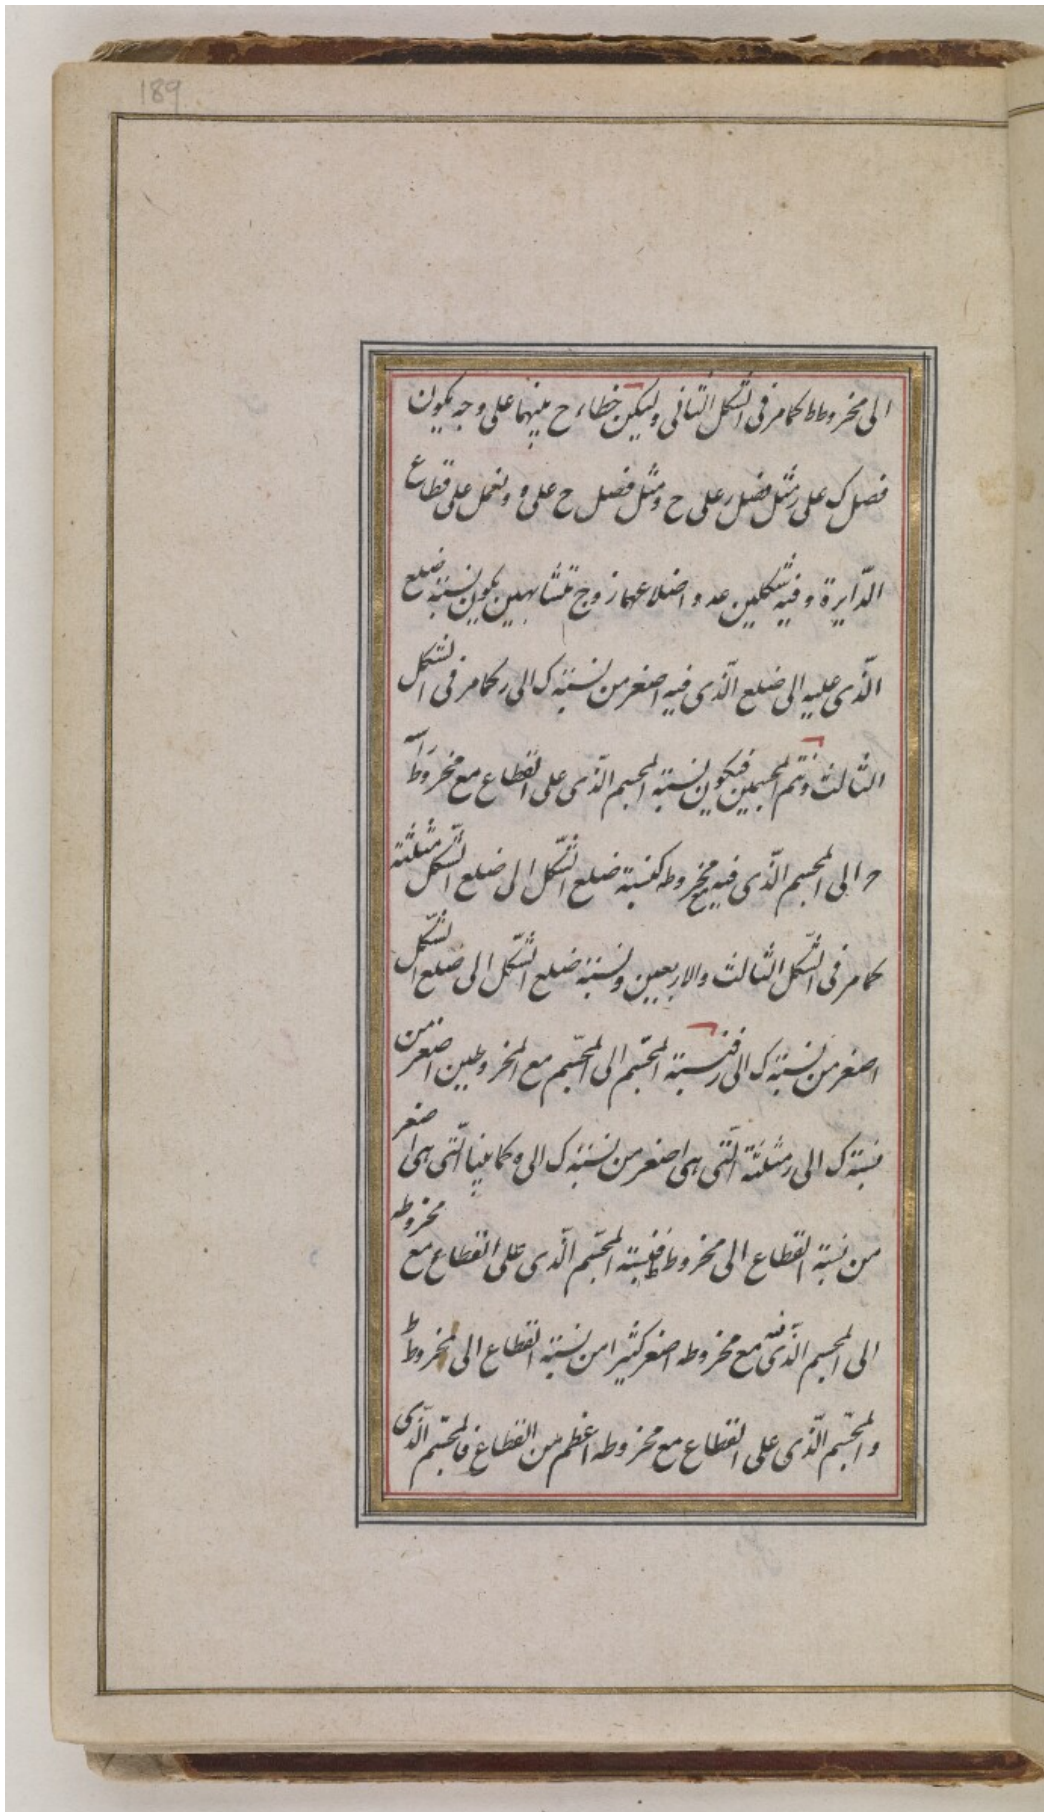 189
الى مخروط ط كما مر فى الشكل الثانى وليكن خطاء ح بينهما على وجه يكون
فصل ك على ر مثل فضل ر على ح ومثل فضل ح على و ونعمل على قطاع
الدّايرة وفيه شكلين عدد اضلاعهما زوج متشابهين يكون نسبة ضلع
الّذى عليه الى ضلع الّذى فيه اصغر من نسبة ك الى ر كما مر فى الشكل
الثالث ونتم المجسمين فيكون نسبة المجسم الّذى على القطاع مع مخروط
الى المجسم الّذى فيه مع مخروطه كنسبة ضلع الشّكل الى ضلع الشّكل مثلثة
كما مر فى الشّكل الثالث والاربعين ونسبة ضلع الشّكل الى ضلع الشّكل
اصغر من نسبة ك الى ر فنسبة المجسّم الى المجسّم مع المخروطين اصغر من
نسبة ك الى ر مثلثة الّتى هى اصغر من نسبة ك الى و كما بينا الّتى هى اصغر
من نسبة القطاع الى مخروط ط فنسبة المجسّم الّذى على القطاع مع مخروطه
الى المجسم الّذى فيه مع مخروطه اصغر كثيرا من نسبة القطاع الى مخروط ط
والمجسّم الّذى على القطاع مع مخروطه اعظم من القطاع فالمجسّم الّذى